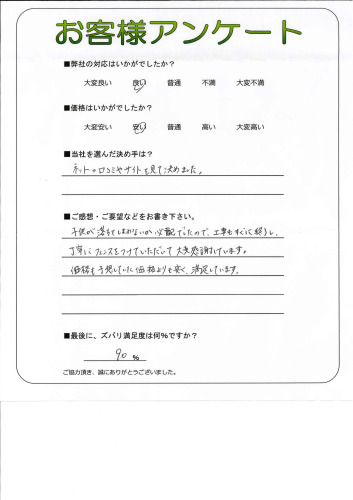 お客様アンケート
■弊社の対応はいかがでしたか？
大変良い 良い 普通 不満 大変不満
■価格はいかがでしたか？
大変安い 安い 普通 高い 大変高い
■当社を選んだ決め手は？
ネットの口コミやサイトを見て決めました。
■ご感想・ご要望などをお書き下さい。
子供が落ちてしまわないか心配でたので、工事もすぐに終り、
丁寧にフェンスをつけていただいて大変感謝しています。
価格も予想していた価格よりも安く、満足しています。
■最後に、ズバリ満足度は何％ですか？
90 %
ご協力頂き、誠にありがとうございました。